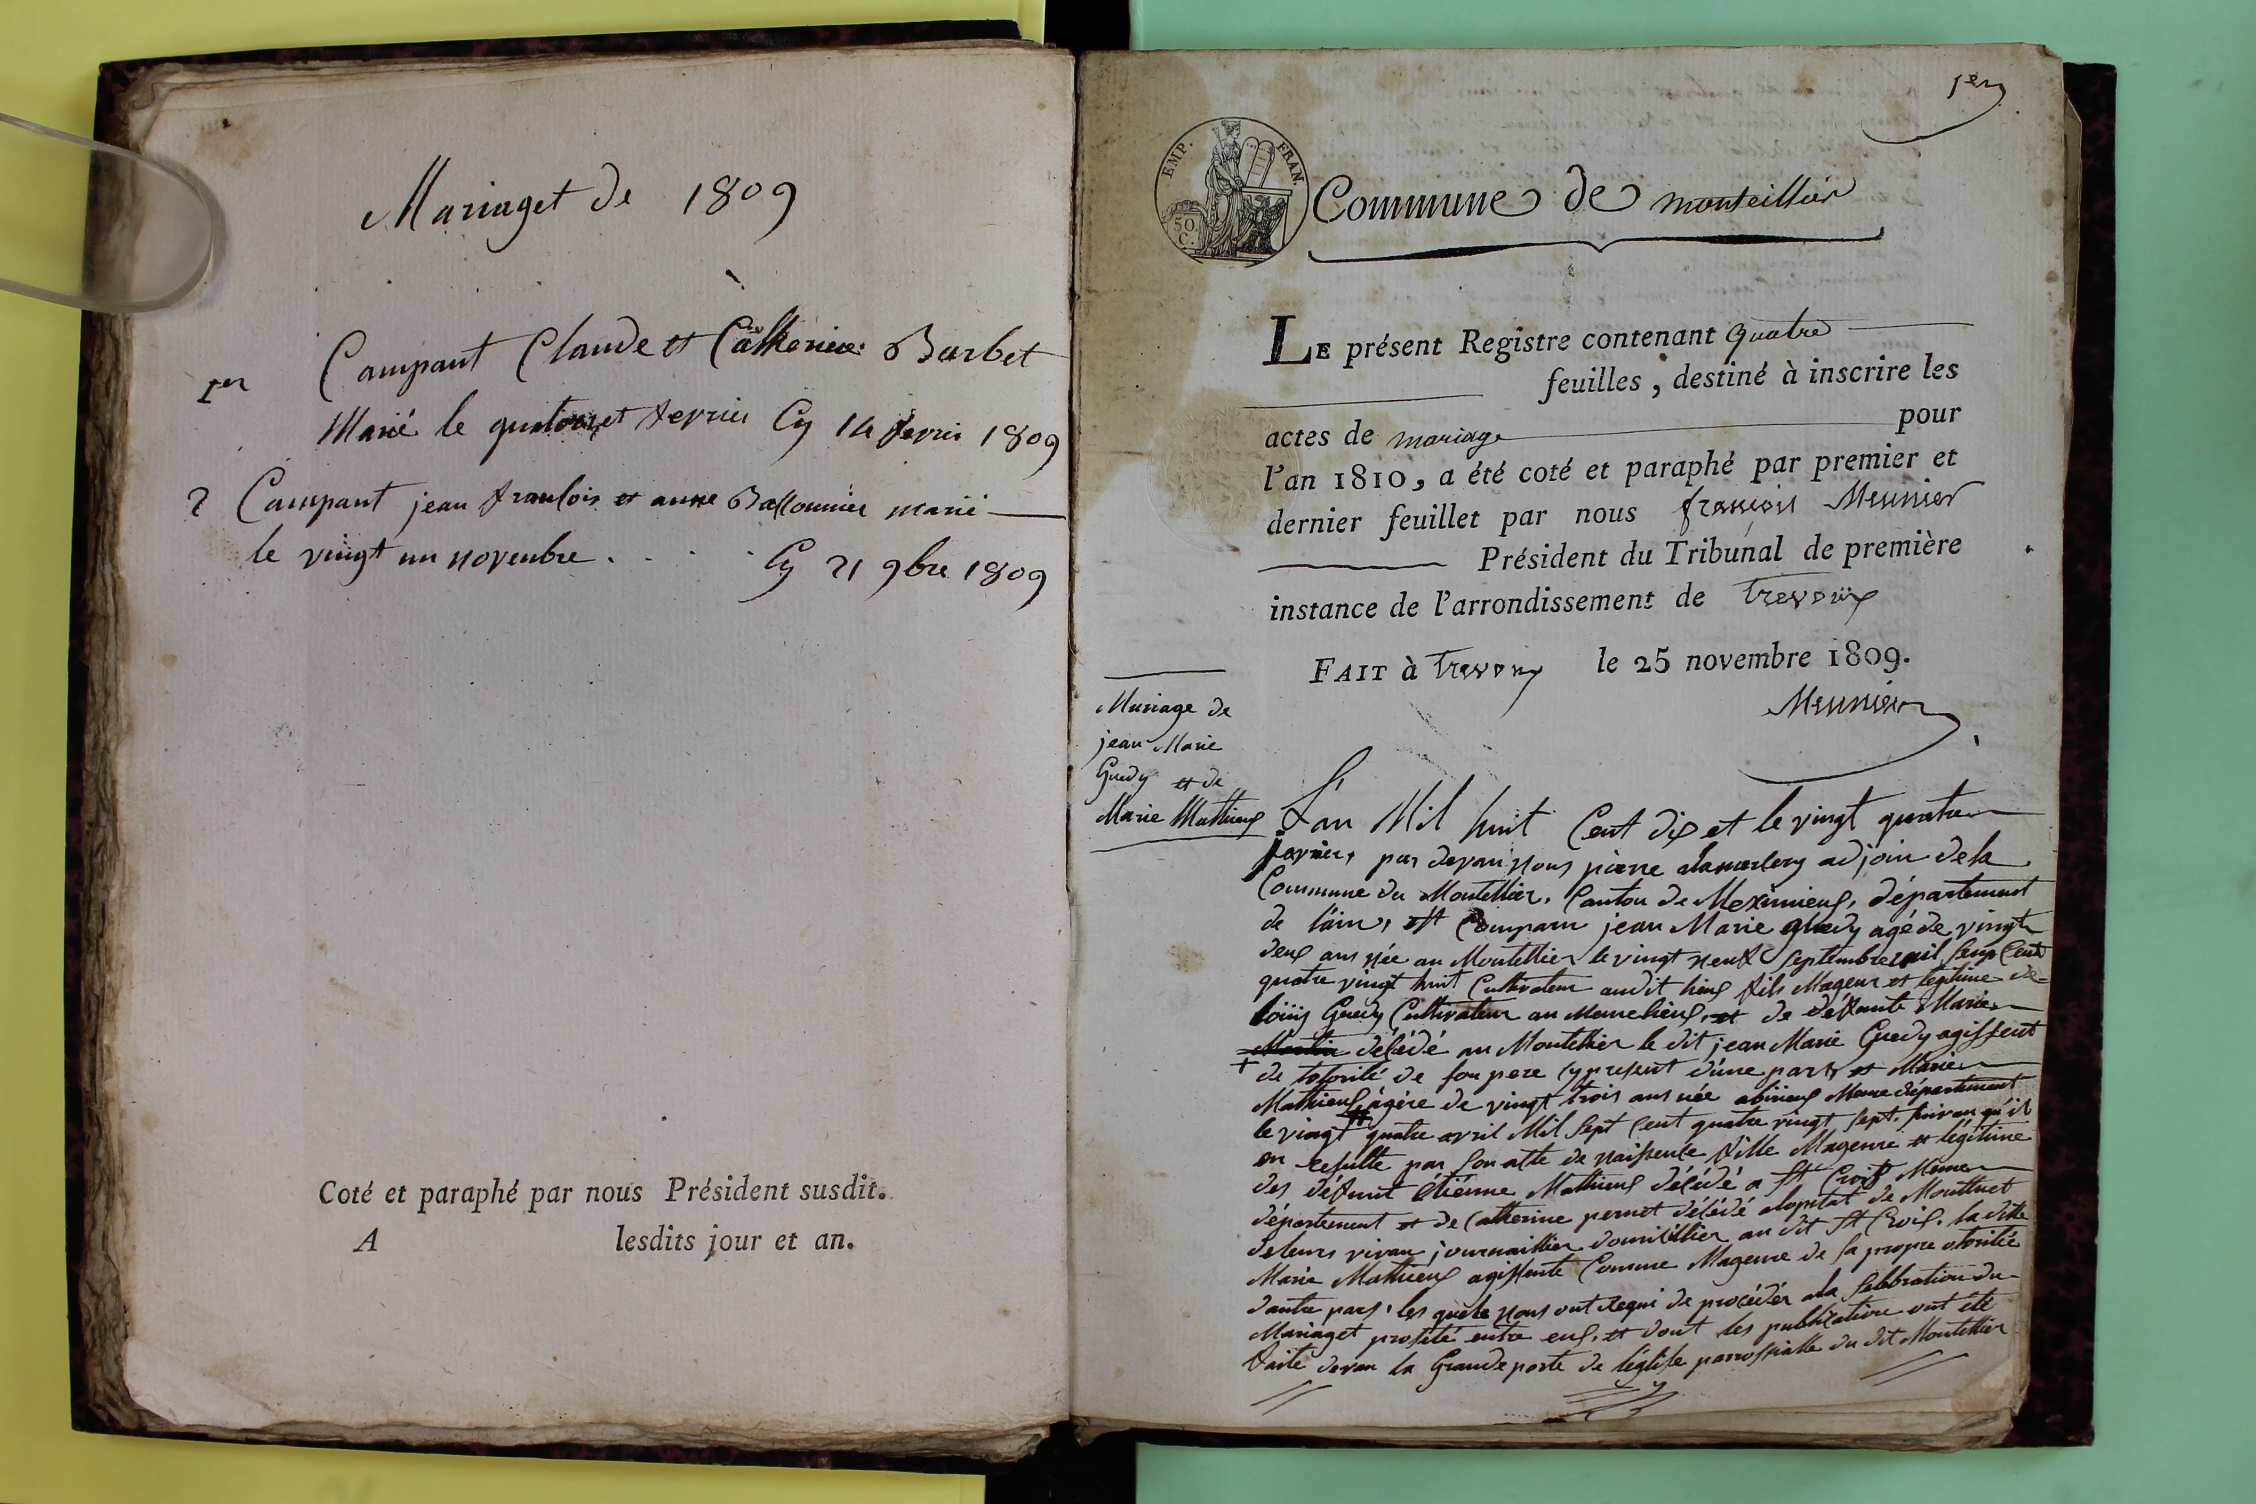 Mariaget de 1809
1er Campant Claude et Catherine Barbet
Marié le quatorzet fevrier Cy 14 fevrier 1809
2 Campant jean franſois et anne Ballonnier marié
le vingt un novenbre . . . . Cy 21 9bre 1809
Coté et paraphé par nous Président susdit.
A lesdits jour et an.
1er
EMP. FRAN.
50 C.
Commune de monteillier
LE présent Registre contenant quatre
feuilles, destiné à inscrire les
actes de mariage pour
l'an 1810, a été coté et paraphé par premier et
dernier feuillet par nous françois Meunier
Président du Tribunal de première
instance de l'arrondissement de Trevoux
FAIT à Trevoux le 25 novembre 1809.
Meunier
Mariage de
jean Marie
Guedy et de
Marie Mathieux
L'an Mil huit Cent dix et le vingt quatre
janvier, par devan nous pierre adjoin de la
Commune du Montellier, Canton de Meximieux, département
de l'ain, est Comparu jean Marie Guedy agé de vingt
deux ans née au Montellier le vingt neuf septembre mil sept Cent
quatre vingt huit Cultivateur audit lieux fils Mageur et legitime de
loüis Guedy Cultivateur au Meme lieux, et de défunte Marie
Martin déſédé au Montellier le dit jean Marie Guedy agiſſent
de de son pere cy present d'une part et Marie
Mathieux agére de vingt trois ans née Meme département
le vingt quatre avril Mil sept Cent quatre vingt sept, suivan qu'il
en resulte par son acte de naiſſenſe fille Mageure et légitime
des défunt étiénne Mathieux déſédé a St Croix Meme
département et de Catherine pernet déſédé alopital de Montluet
de leurs vivan journaillier domicillier au dit St Croix. la dite
Marie Mathieux agiſſente Comme Mageure de sa propre otorité
d'autre part, les quels nous ont requi de procéder ala selébration du
Mariaget projeté entre eux, et dont les publications ont été
faite devan la Grande porte de l'église parroſſialle du dit Montellier